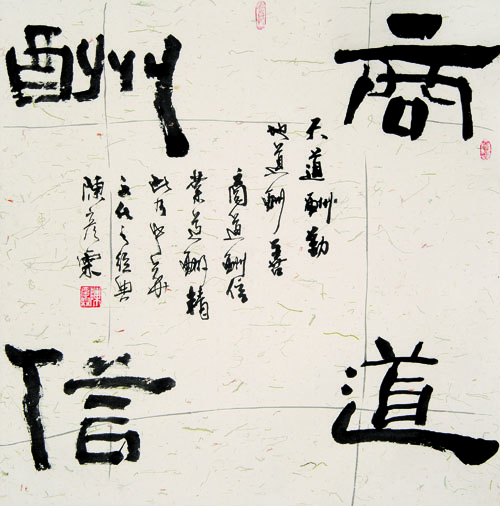 商道
酬信
天道酬勤
地道酬善
商道酬信
業道酬精
此乃中华
文化之经典
陳彦